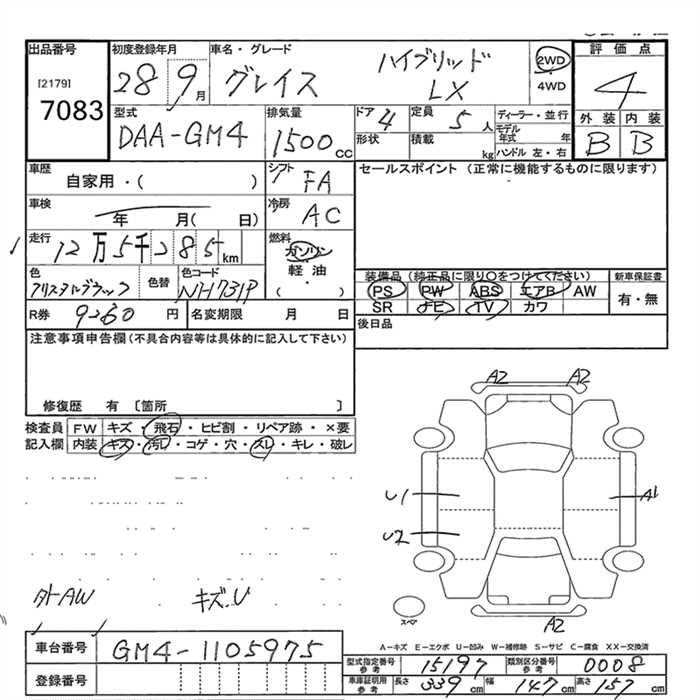 出品番号 初度登録年月 車名・グレード 評価点
[2179] 7083 28 9月 グレイス ハイブリッド LX 2WD 4WD 4
型式 排気量 ドア 4 定員 5人 ディーラー・並行 外装 内装
DAA-GM4 1500cc 形状 積載 kg モデル年式 年 ハンドル 左・右 B B
車歴 自家用・( ) シフト FA セールスポイント (正常に機能するものに限ります)
車検 年 月( 日) 冷房 AC
走行 12万5千285km 燃料 ガソリン 軽油 ( )
装備品 (純正品に限り○をつけてください) 新車保証書
色 クリスタルブラック 色替 色コード NH731P PS PW ABS エアB AW 有・無
R券 9260円 名変期限 月 日 SR TV カワ
注意事項申告欄(不具合内容等は具体的に記入して下さい) 後日品
修復歴 有 〔箇所 〕
検査員 FW キズ・飛石・ヒビ割・リペア跡・×要
記入欄 内装 キズ・汚レ・コゲ・穴・スレ・キレ・破レ
A2 A2
U1 A1
U2
外AW キズ.U
スペア A2
A-キズ E-エクボ U-凹み W-補修跡 S-サビ C-腐食 XX-交換済
車台番号 GM4-1105975 型式指定番号 参考 15197 類別区分番号 参考 0008
登録番号 車庫証明用 参考 長さ 339cm 幅 147cm 高さ 157cm